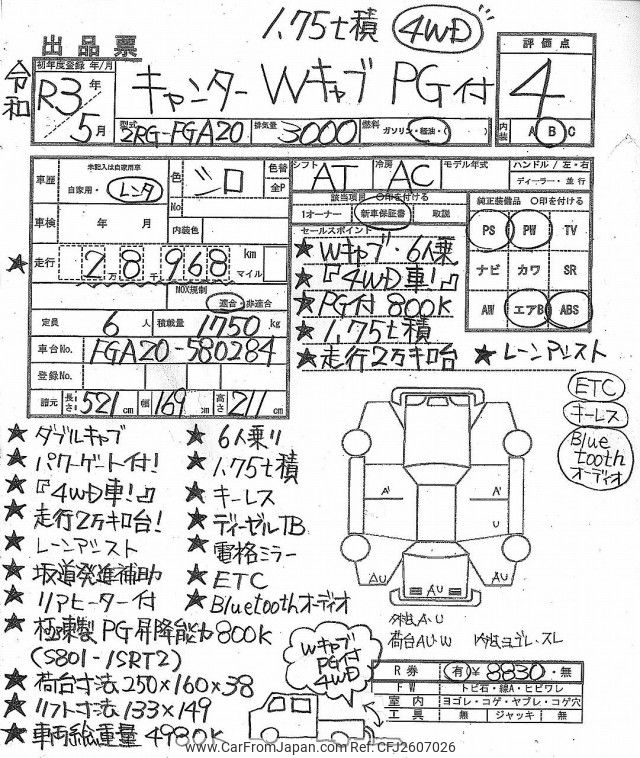 1.75t積 4WD
出品票
令和
初年度登録 年/月
R3年
5月
キャンター Wキャブ PG付
評価点
4
内装 A B C
型式 2RG-FGA20
排気量 3000
燃料 ガソリン・軽油・( )
車歴
未記入は自家用車
自家用・レンタ
色 シロ
色替
全P
No
車検 年 月
内装色
★ 走行 2万8千968 km マイル
NOX規制
適合・非適合
定員 6人 積載量 1750 kg
車台No. FGA20-580284
登録No.
諸元 長さ 521cm 幅 169cm 高さ 211cm
シフト AT
冷房 AC
モデル年式
ハンドル/左・右
ディーラー・並行
該当項目 〇印を付ける
1オーナー 新車保証書 取説
セールスポイント
★ Wキャブ・6人乗
★『4WD車!』
★ PG付 800k
★ 1.75t積
★ 走行2万キロ台 ★ レーンアシスト
純正装備品 〇印を付ける
PS PW TV
ナビ カワ SR
AW エアB ABS
ETC
キーレス
Bluetoothオーディオ
★ ダブルキャブ
★ パワーゲート付!
★『4WD車!』
★ 走行2万キロ台!
★ レーンアシスト
★ 坂道発進補助
★ リアヒーター付
★ 極東製PG昇降能力800k
(S801-1SRT2)
★ 荷台寸法250×160×38
★ リフト寸法133×149
★ 車両総重量 4980K
★ 6人乗り
★ 1.75t積
★ キーレス
★ ディーゼルTB
★ 電格ミラー
★ ETC
★ Bluetoothオーディオ
A
A
U
AU
AU
AU
外板A・U
荷台AU・W 内板ヨゴレ・スレ
Wキャブ
PG付
4WD
R券 有 ¥8830・無
FW トビ石・線A・ヒビワレ
室内 ヨゴレ・コゲ・ヤブレ・コゲ穴
工具 無 ジャッキ 無
www.CarFromJapan.com Ref: CFJ2607026